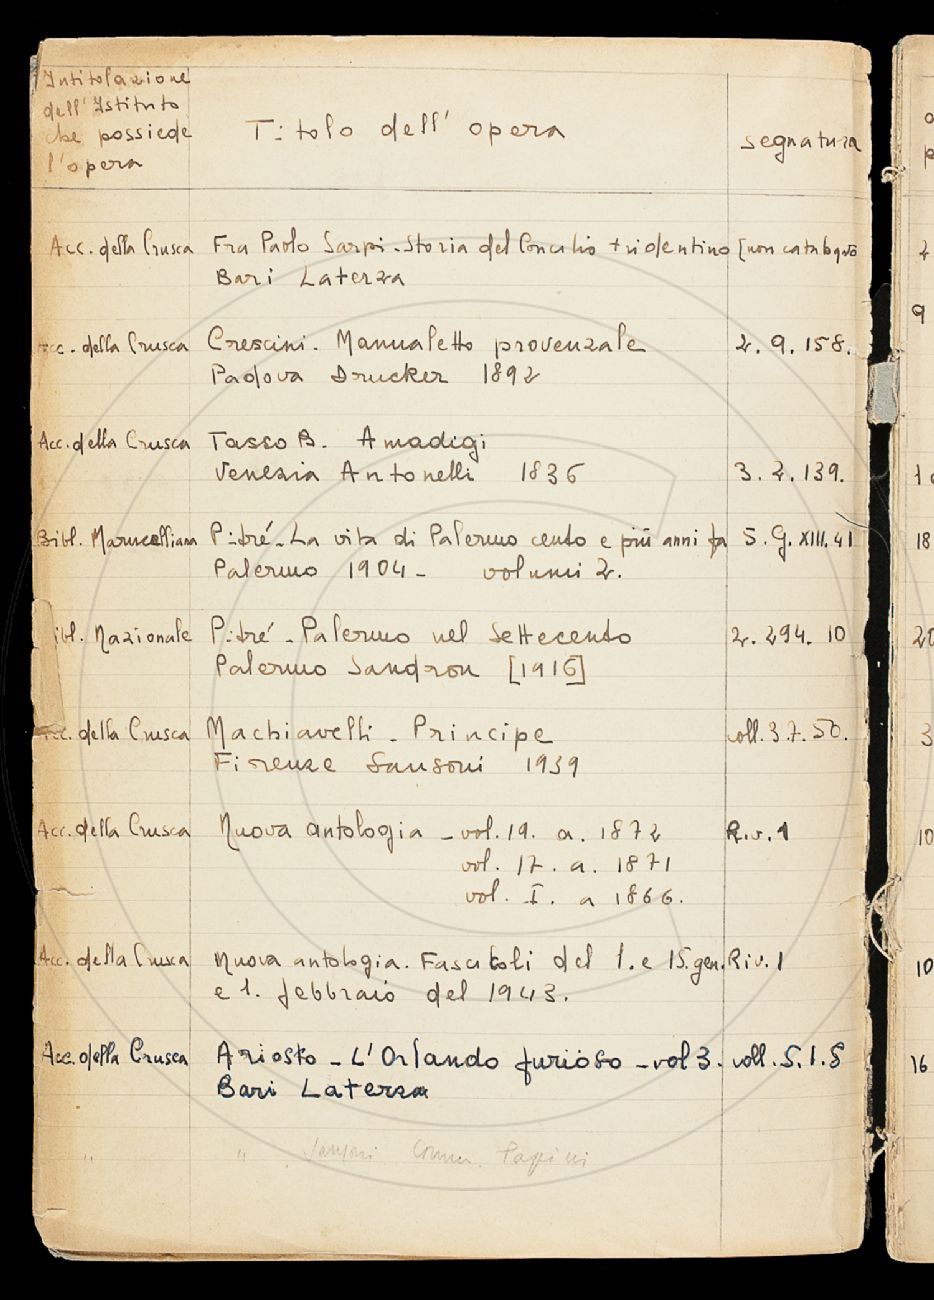 Intitolazione
dell'Istituto
che possiede
l'opera
Titolo dell'opera
segnatura
Acc. della Crusca Fra Paolo Sarpi - Storia del Concilio tridentino [non catalogato
Bari Laterza
Acc. della Crusca Crescini. Manualetto provenzale 2. 9. 158.
Padova Drucker 1892
Acc. della Crusca Tasso B. Amadigi
Venezia Antonelli 1836 3. 2. 139.
Bibl. Marucelliana Pitré - La vita di Palermo cento e più anni fa 5. G. XIII. 41
Palermo 1904 - volumi 2.
Bibl. Nazionale Pitré - Palermo nel Settecento 2. 294. 10
Palermo Sandron [1916]
Acc. della Crusca Machiavelli - Principe coll. 3.7.50.
Firenze Sansoni 1939
Acc. della Crusca Nuova antologia - vol. 19. a. 1872 Riv. 1
vol. 17. a. 1871
vol. I. a 1866.
Acc. della Crusca Nuova antologia. Fascicoli del 1. e 15. gen. Riv. 1
e 1. febbraio del 1943.
Acc. della Crusca Ariosto - L'Orlando furioso - vol 3. coll. 5. 1. 8
Bari Laterza
" " Sansoni Comm. Papini
2
9
18
20
3
10
10
16